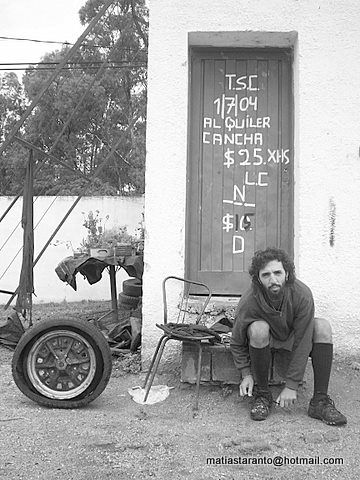 T.S.C
1/7/04
ALQUILER
CANCHA
$25.XHS
L.C
N
D
matiastaranto@hotmail.com